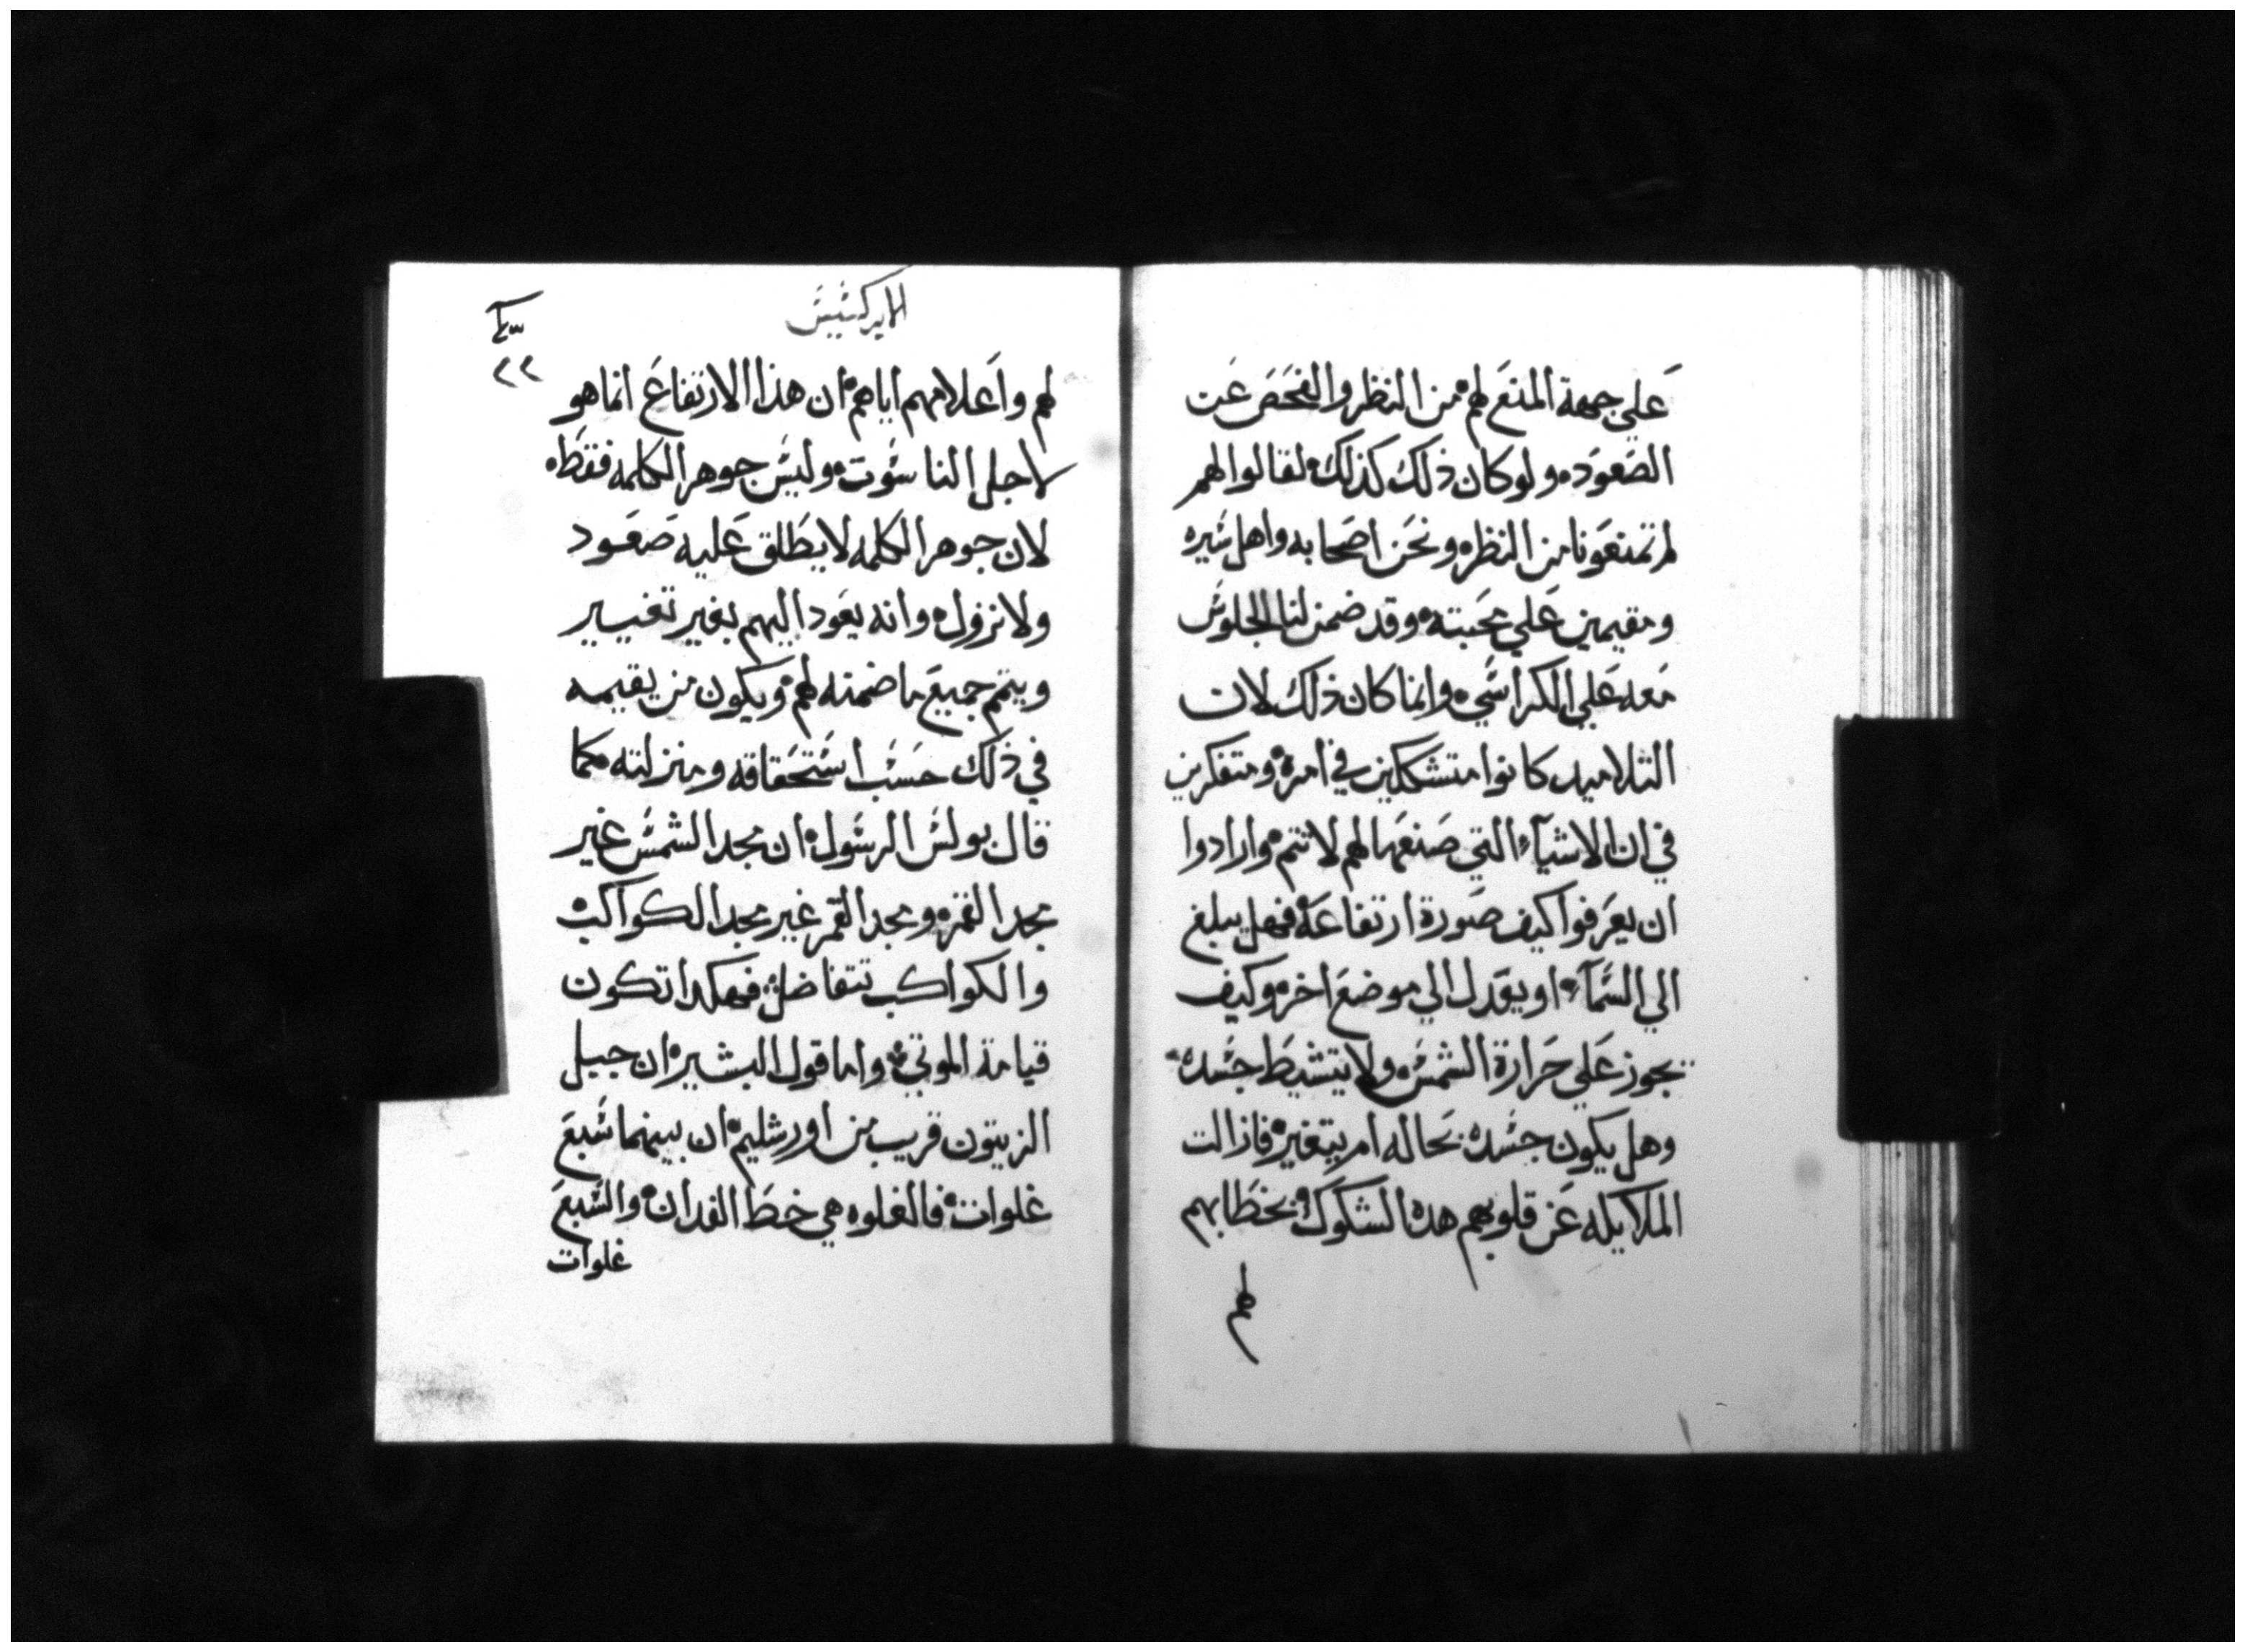 علي جهة المنع لهم من النظر والفحص عن
الصعود ولو كان ذلك كذلك لقالوا لهم
لم تمنعونا من النظر ونحن اصحابه واهل سيره
ومقيمين علي محبته وقد ضمن لنا الجلوس
معه علي الكراسي وانما كان ذلك لان
التلاميد كانوا متشككين في امره ومتفكرين
في ان الاشيآء التي صنعها لهم لا تتم وارادوا
ان يعرفوا كيف صورة ارتفاعه فهل يبلغ
الي السمآء او يعدل الي موضع اخر وكيف
يجوز علي حرارة الشمس ولا يتشيط جسده
وهل يكون جسده بحاله ام يتغير فازالت
الملايكه عن قلوبهم هده الشكوك بخطابهم
لهم
الابركسيس
٢٢
لهم واعلامهم اياهم ان هذا الارتفاع انما هو
لاجل الناسوت وليس جوهر الكلمه فقط
لان جوهر الكلمه لا يطلق عليه صعود
ولا نزول وانه يعود اليهم بغير تغيير
ويتم جميع ما ضمنه لهم ويكون من يقيمه
في ذلك حسب استحقاقه ومنزلته كما
قال بولس الرسول ان مجد الشمس غير
مجد القمر ومجد القمر غير مجد الكواكب
والكواكب تتفاضل فهكدا تكون
قيامة الموتي واما قول البشير ان جبل
الزيتون قريب من اورشليم ان بينهما سبع
غلوات فالغلوه هي خط الفدان والسبع
غلوات